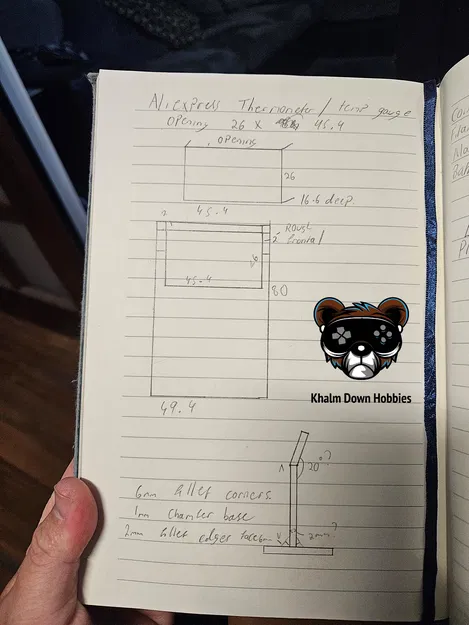 AliExpress Thermometer / temp gauge
Opening 26 x 45.4
Opening
26
16.6 deep
45.4
2
Rough
2 frontal
45.4
80
49.4
20°?
6mm fillet corners
1mm chamfer base
2mm fillet edges face
2mm?
Khalm Down Hobbies